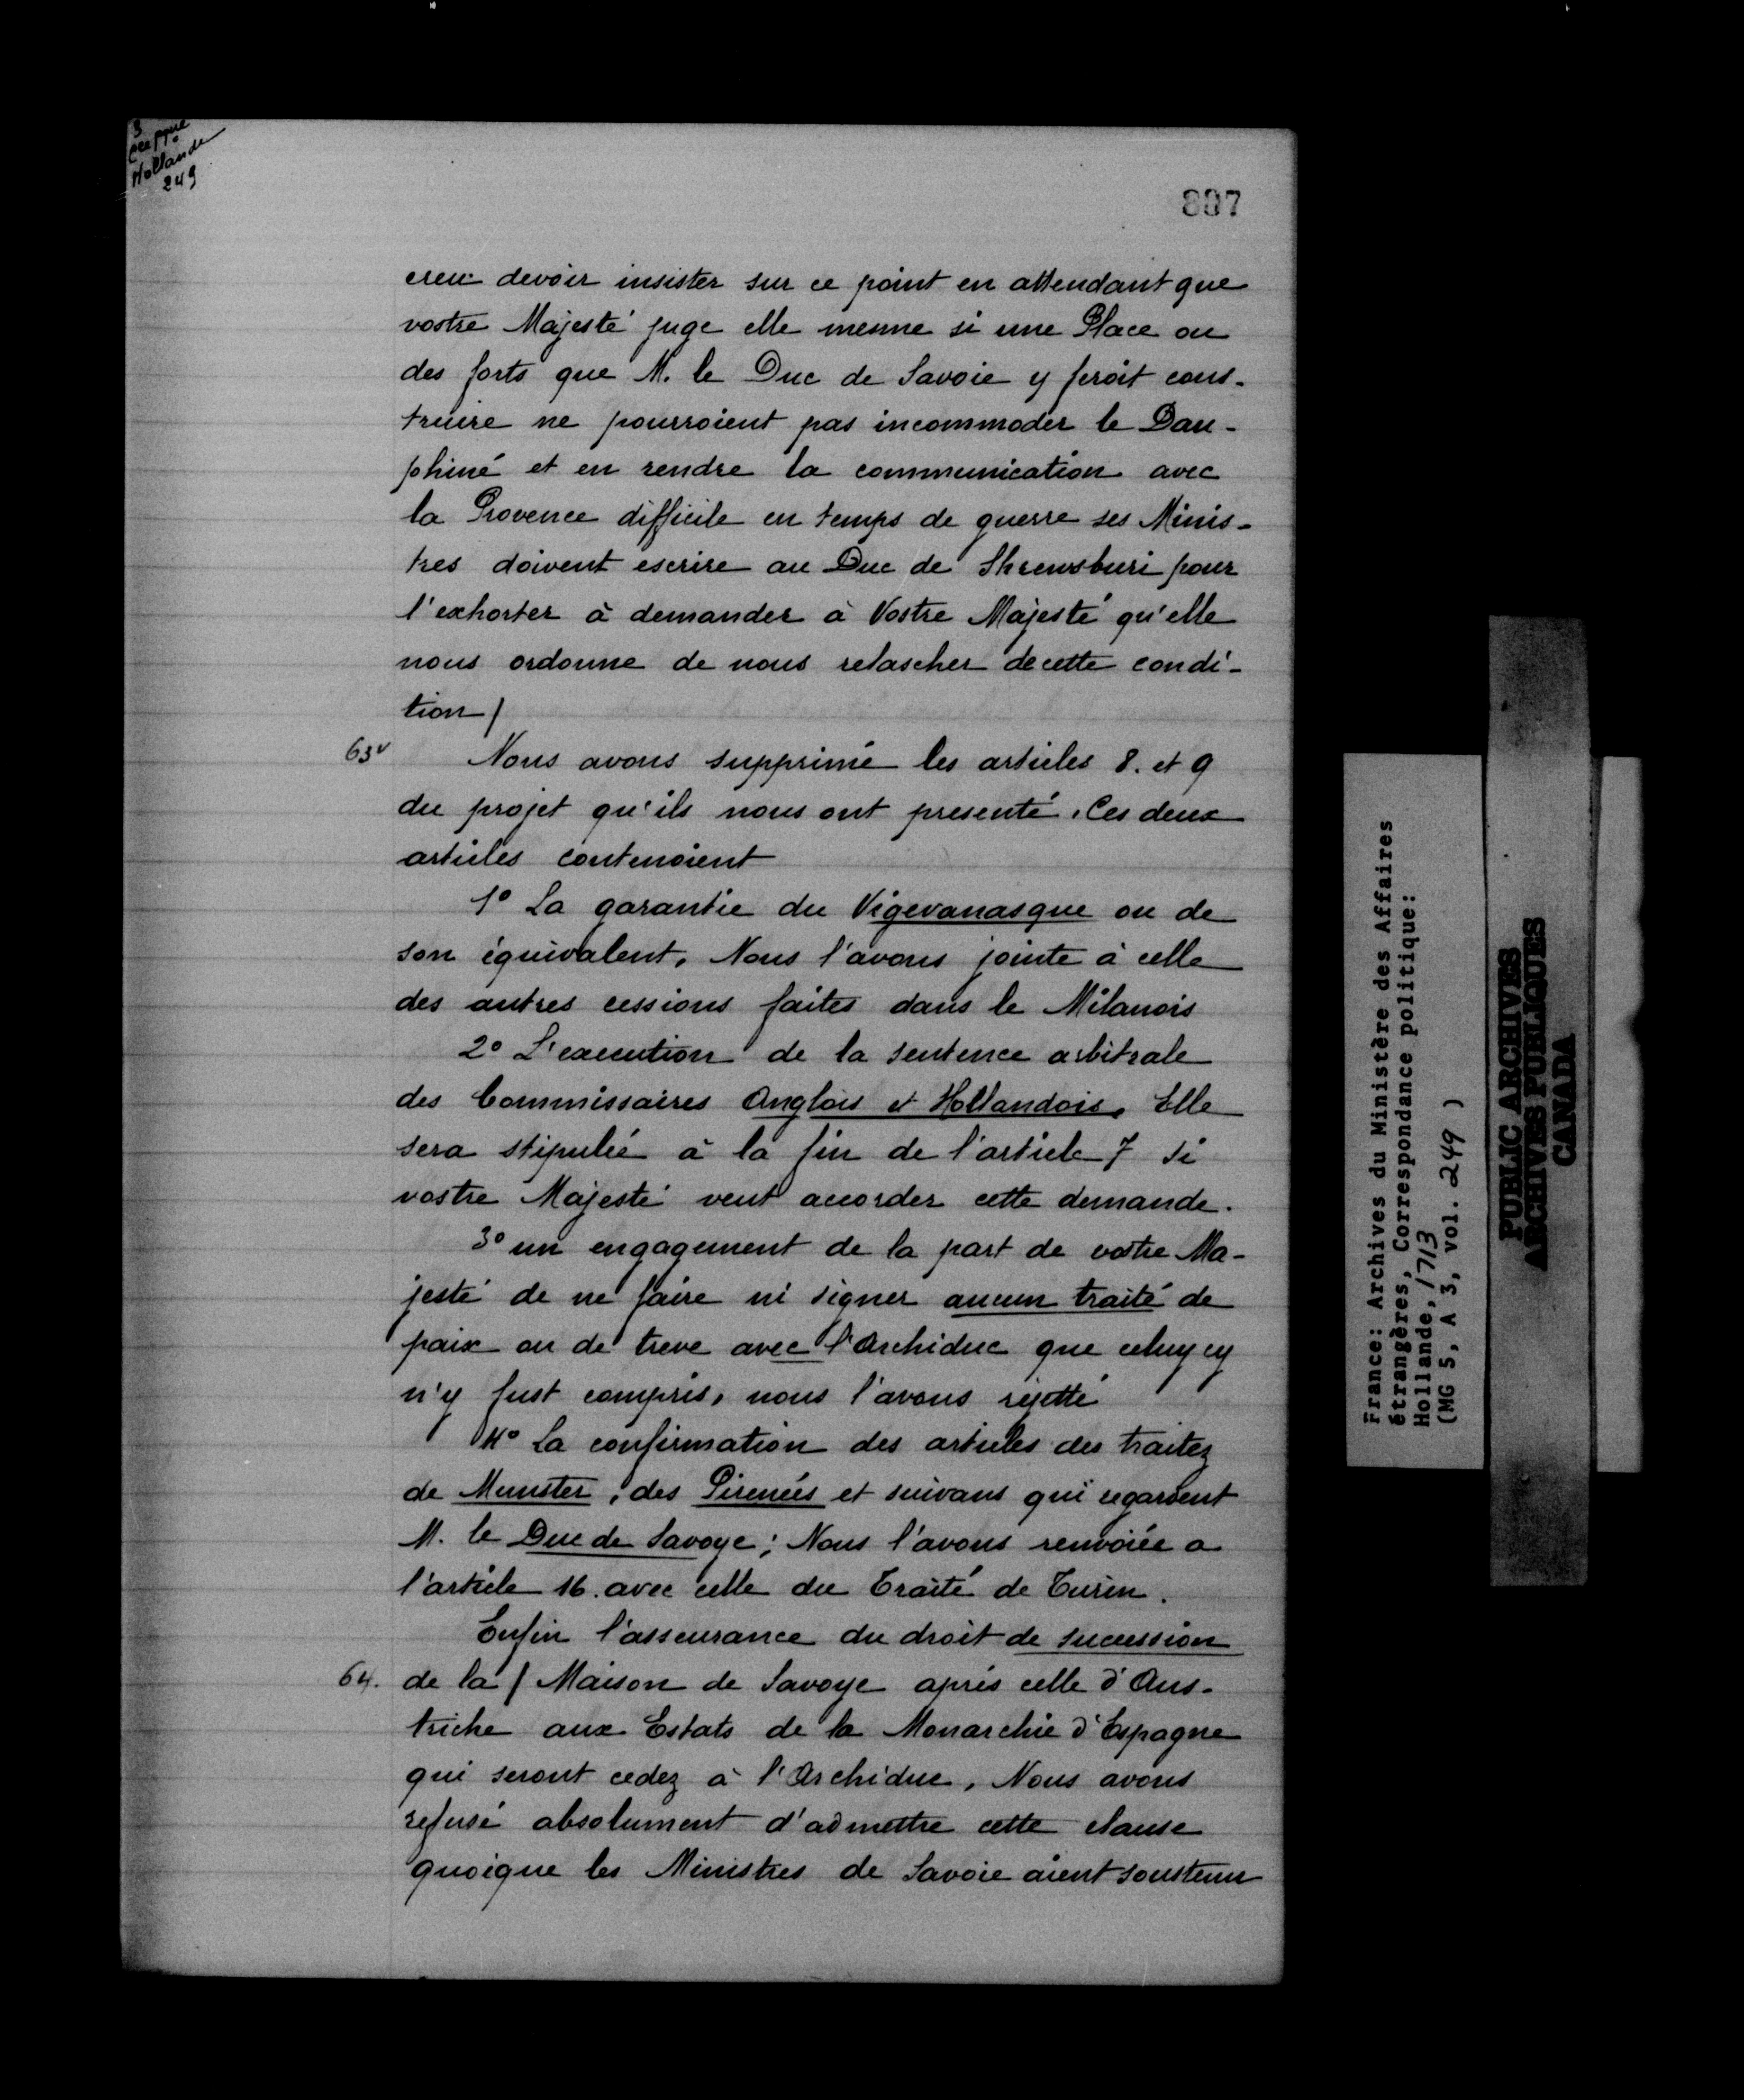 3
Hollande
249
807
creu devoir insister sur ce point en attendant que
vostre Majesté juge elle mesme si une Place ou
des forts que M. le Duc de Savoie y feroit cons-
truire ne pourroient pas incommoder le Dau-
phiné et en rendre la communication avec
la Provence difficile en temps de guerre ses Minis-
tres doivent escrire au Duc de Shrewsburi pour
l'exhorter à demander à Vostre Majesté qu'elle
nous ordonne de nous relascher de cette condi-
tion/
63v Nous avons supprimé les articles 8. et 9
du projet qu'ils nous ont presenté. Ces deux
articles contenoient
1° La garantie du Vigevanasque ou de
son équivalent. Nous l'avons jointe à celle
des autres cessions faites dans le Milanois
2° L'execution de la sentence arbitrale
des Commissaires Anglois et Hollandois. Elle
sera stipulée à la fin de l'article 7 si
vostre Majesté veut accorder cette demande.
3° un engagement de la part de vostre Ma-
jesté de ne faire ni signer aucun traité de
paix ou de treve avec l'Archiduc que celuy cy
n'y fust compris, nous l'avons rejetté
4° La confirmation des articles des traitez
de Munster, des Pirenées et suivans qui regardent
M. le Duc de Savoye; Nous l'avons renvoiée a
l'article 16. avec celle du Traité de Turin.
Enfin l'asseurance du droit de succession
64. de la / Maison de Savoye après celle d'Aus-
triche aux Estats de la Monarchie d'Espagne
qui seront cedez à l'Archiduc. Nous avons
refusé absolument d'admettre cette clause
quoique les Ministres de Savoie aient soustenu
France: Archives du Ministère des Affaires
étrangères, Correspondance politique:
Hollande, 1713
(MG 5, A 3, vol. 249 )
PUBLIC ARCHIVES
ARCHIVES PUBLIQUES
CANADA